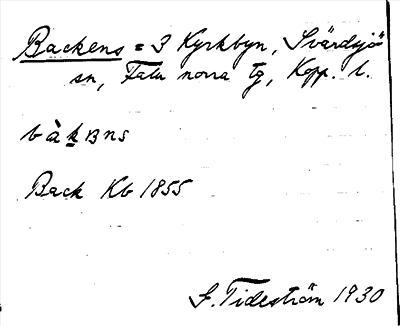 Backens = 3 Kyrkbyn, Svärdsjö
sn, Falu norra tg, Kopp. l.
bàkʙns
Back Kb 1855
S. Tideström 1930